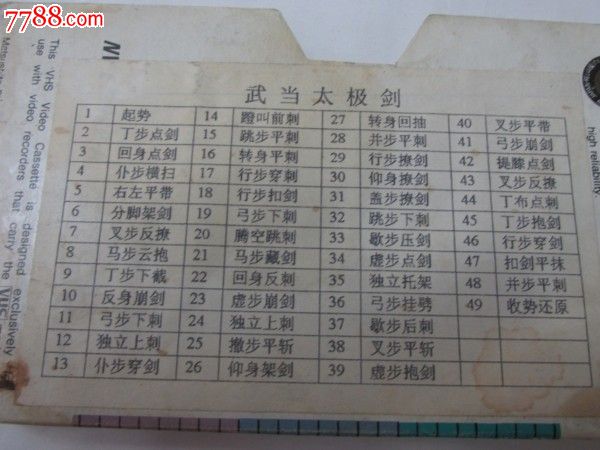 7788.com
NI
This VHS Video Cassette is designed exclusively
use with video recorders that carry the VHS
Matsushita
high reliability
武当太极剑
1 起势 14 蹬叫前刺 27 转身回抽 40 叉步平带
2 丁步点剑 15 跳步平刺 28 并步平刺 41 弓步崩剑
3 回身点剑 16 转身平刺 29 行步撩剑 42 提膝点剑
4 仆步横扫 17 行步穿刺 30 仰身撩剑 43 叉步反撩
5 右左平带 18 行步扣剑 31 盖步撩剑 44 丁布点刺
6 分脚架剑 19 弓步下刺 32 跳步下刺 45 丁步抱剑
7 叉步反撩 20 腾空跳刺 33 歇步压剑 46 行步穿剑
8 马步云抱 21 马步藏剑 34 虚步点剑 47 扣剑平抹
9 丁步下截 22 回身反刺 35 独立托架 48 并步平刺
10 反身崩剑 23 虚步崩剑 36 弓步挂劈 49 收势还原
11 弓步下刺 24 独立上刺 37 歇步后刺
12 独立上刺 25 撤步平斩 38 叉步平斩
13 仆步穿剑 26 仰身架剑 39 虚步抱剑